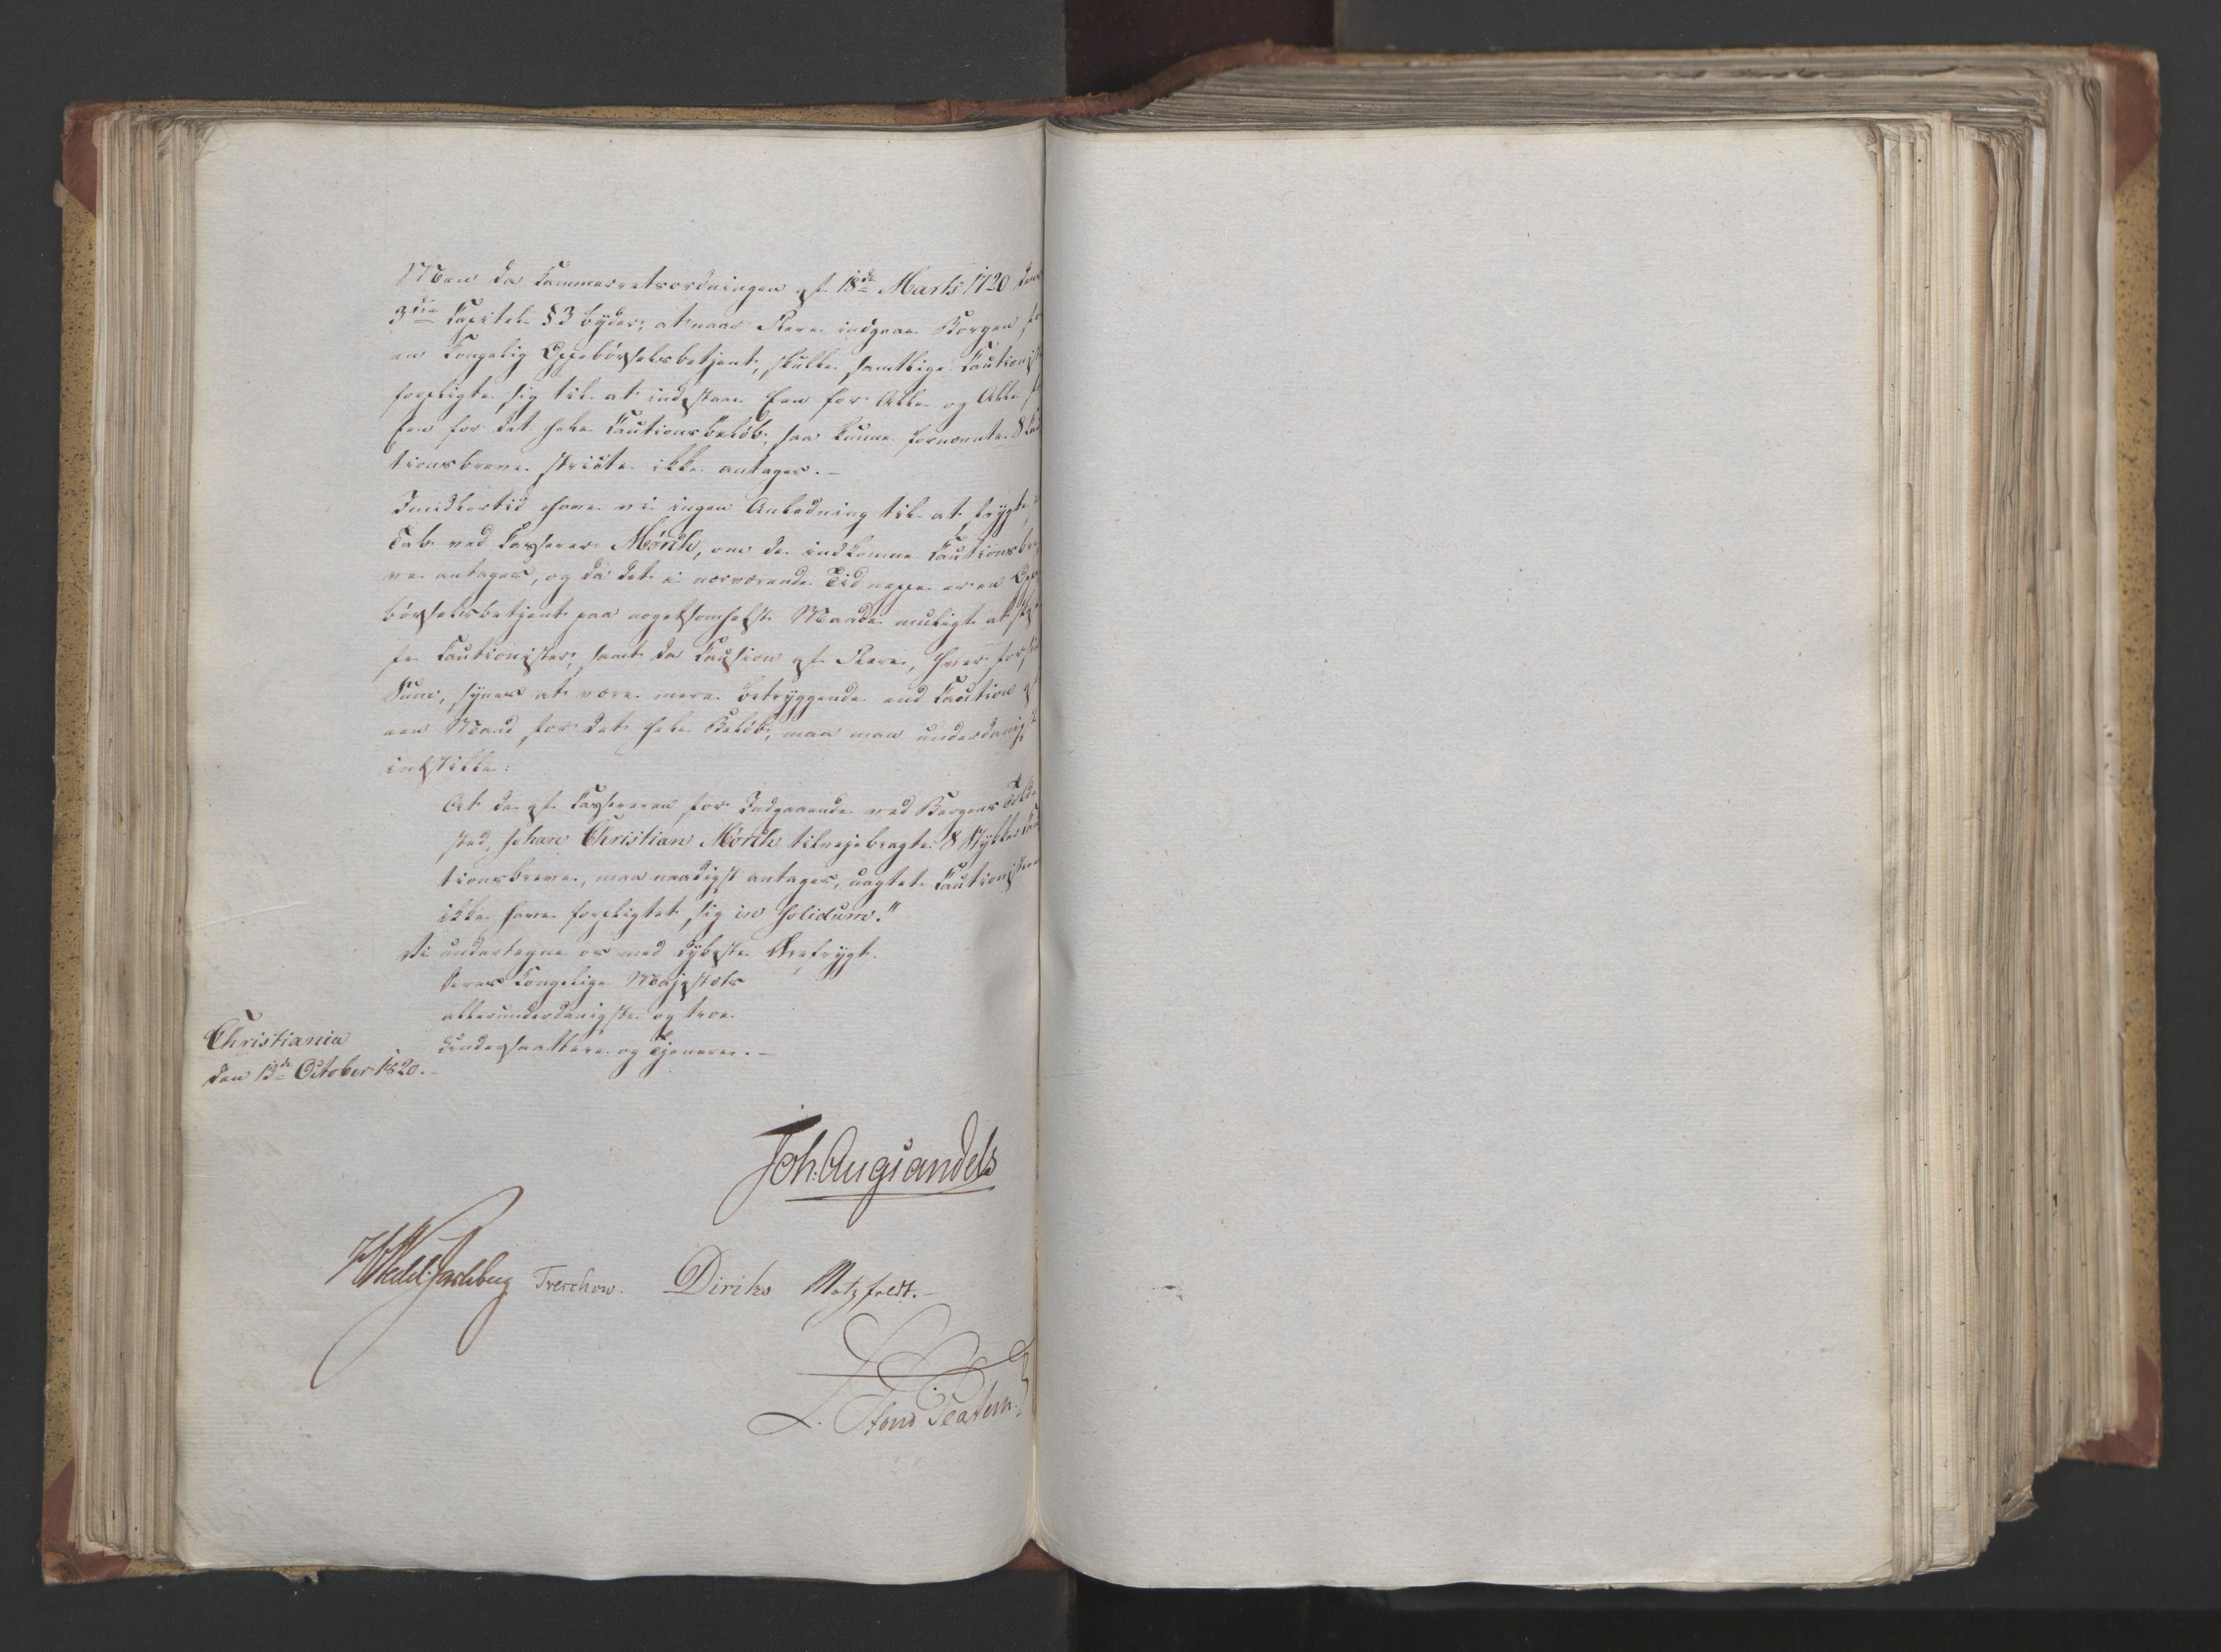 Men da Kammerretsordningen af 18de Marts 1720 dens
3die Capitel §3 byder, at naar Flere indgaae Borgen for
en Kongelig Oppebørselsbetjent, skulle samtlige Cautionist
forpligte sig til at indestaae Een for Alle og Alle for
Een for det hele Cautionsbeløb, saa kunne fornævnte 8 Cau
tionsbreve stricte ikke antages.–
Imidlertid have vi ingen Anledning til at frygte
Tab ved Casserer Mørch, om de indkomne Cautionsbre
ve antages, og da det i nærværende Tid neppe er en Oppe
børselsbetjent paa nogetsomhelst Maade muligt at skaf
fe Cautionister, samt da Caution af Flere, hver for sin
Sum, synes at være mere betryggende end Caution af
een Mand for det hele Beløb, maa man underdanigst
indstille:
At de af Cassereren for Indgaaende ved Bergens Told
sted, Johan Christian Mørch tilvejebragte 8 Stykker Cau
tionsbreve, maa naadigst antages, uagtet Cautionisterne
ikke have forpligtet sig in solidum."
Vi undertegne os med dybeste Ærefrygt.
Deres Kongelige Majestæts
allerunderdanigste og troe
Undersaattere og Tjenere.–
Christiania
den 13de October 1820.–
Joh. Aug. Sandels
HWedel Jarlsberg Treschow. Diriks Motzfeldt.–
L.